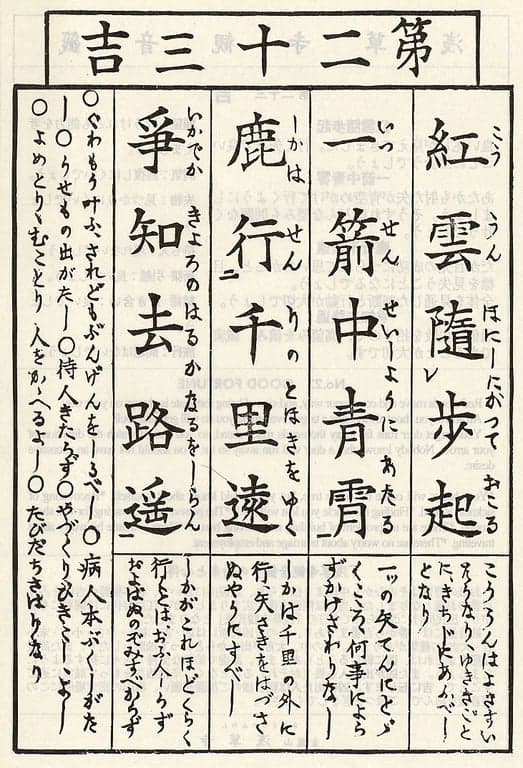 第二十三吉
こう うん ほにしたがつて おこる
紅雲隨レ歩起
こううんはよきずい
そうなり、ゆきさきごと
に、きちじにあふべし
となり
いつ せん せいしように あたる
一箭中青霄
一ッの矢てんにとゞ
く、こころ何事によら
ずかけさわりなし
しかは せんりの とほきを ゆく
鹿行二千里遠一
しかは千里の外に
行矢さきをはづさ
ぬやうにすべし
いかでか きよろのはるかなるをしらん
爭知去路遥
いかがこれほどくらく
行とはおふ人しらず
およばぬのぞみすべからず
○ぐわもうかなふ、されどもぶんげんをしるべし○病人本ぷくしがた
し○うせもの出がたし○待人きたらず○やづくりひきこしよし
○よめとりむことり人をかゝへるよし○たびだちさはりなし